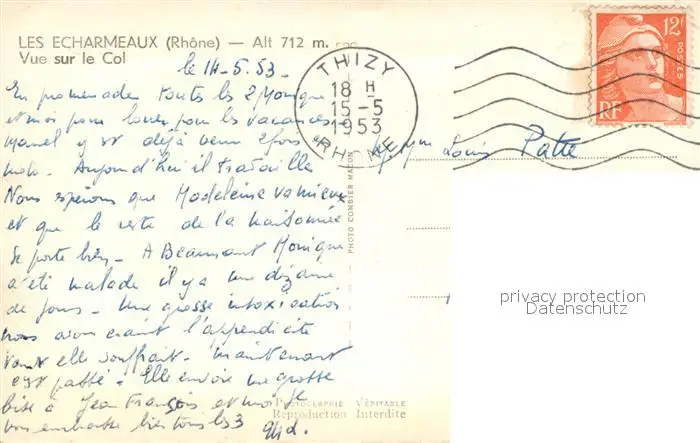 LES ECHARMEAUX (Rhône) — Alt 712 m.
Vue sur le Col
le 14-5.53-
THIZY
18 H
15-5
1953
RHONE
12F
POSTES
RF
En promenade toutes les 2 Monique
et moi pour louer pour les vacances
Marcel y est déjà venu 2 fois en
moto. Aujourd'hui il travaille
Nous espérons que Madeleine va mieux
et que le reste de la maisonnée
se porte bien - A Beaumont Monique
a été malade il y a une dizaine
de jours - Une grosse intoxication
nous avons craint l'appendicite
tant elle souffrait - maintenant
c'est passé - Elle envoie une grosse
bise à Jean François et moi je
vous embrasse bien tous les 3
Mme Louis Patte
PHOTO COMBIER MACON
privacy protection
Datenschutz
PHOTOGRAPHIE VÉRITABLE
Reproduction Interdite